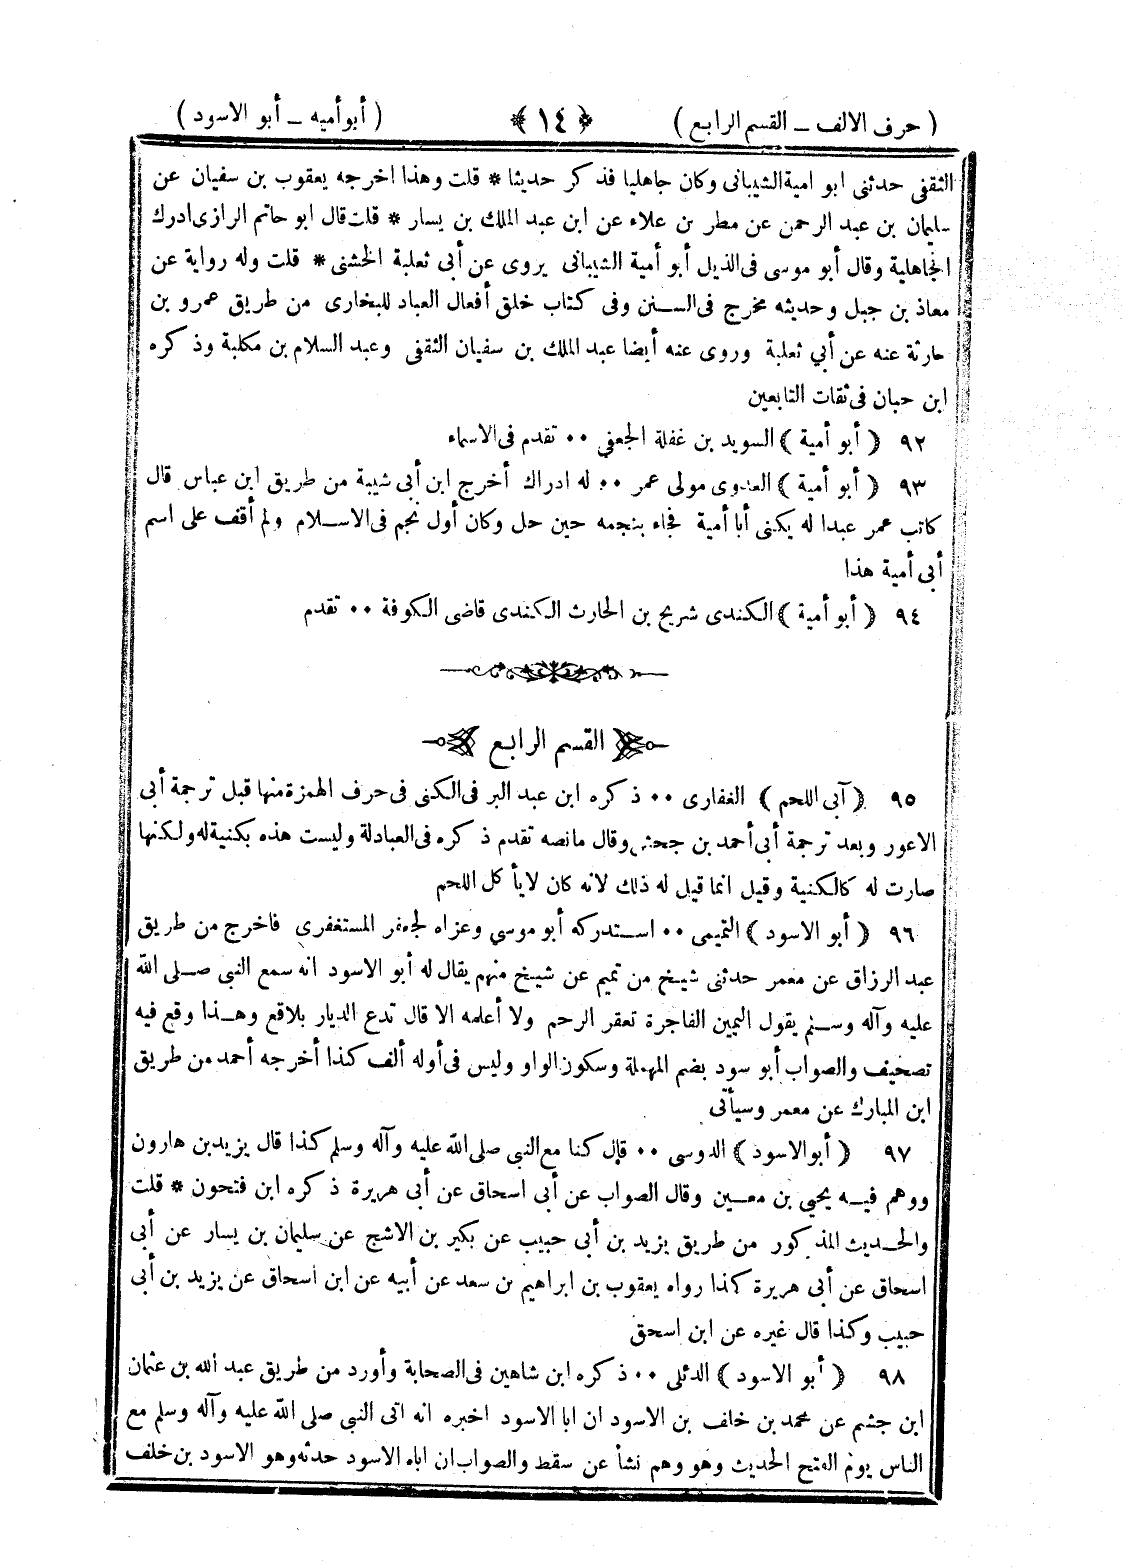 ( حرف الالف ــ القسم الرابع ) ﴿ ١٤ ﴾ ( أبو أميه ــ أبو الاسود )
الثقفى حدثنى ابو امية الشيبانى وكان جاهليا فذكر حديثا * قلت وهذا اخرجه يعقوب بن سفيان عن
سليمان بن عبد الرحمن عن مطر بن علاء عن ابن عبد الملك بن يسار * قلت قال ابو حاتم الرازى ادرك
الجاهلية وقال أبو موسى فى الذيل أبو أمية الشيبانى يروى عن أبى ثعلبة الخشنى * قلت وله رواية عن
معاذ بن جبل وحديثه مخرج فى السنن وفى كتاب خلق أفعال العباد للبخارى من طريق عمرو بن
حارثة عنه عن أبي ثعلبة وروى عنه أيضا عبد الملك بن سفيان الثقفى وعبد السلام بن مكلبة وذكره
ابن حبان فى ثقات التابعين
٩٢ ( أبو أمية ) السويد بن غفلة الجعفي ٠٠ تقدم فى الاسماء
٩٣ ( أبو أمية ) العدوى مولى عمر ٠٠ له ادراك أخرج ابن أبى شيبة من طريق ابن عباس قال
كاتب عمر عبدا له يكنى أبا أمية فجاء بنجمه حين حل وكان أول نجم فى الاسلام ولم أقف على اسم
أبى أمية هذا
٩٤ ( أبو أمية ) الكندى شريح بن الحارث الكندى قاضى الكوفة ٠٠ تقدم
القسم الرابع
٩٥ ( آبى اللحم ) الغفارى ٠٠ ذكره ابن عبد البر فى الكنى فى حرف الهمزة منها قبل ترجمة أبى
الاعور وبعد ترجمة أبى أحمد بن جحش وقال مانصه تقدم ذكره فى العبادلة وليست هذه بكنية له ولكنها
صارت له كالكنية وقيل انما قيل له ذلك لانه كان لا يأكل اللحم
٩٦ ( أبو الاسود ) التميمى ٠٠ استدركه أبو موسي وعزاه لجعفر المستغفرى فاخرج من طريق
عبد الرزاق عن معمر حدثنى شيخ من تميم عن شيخ منهم يقال له أبو الاسود انه سمع النبي صلى الله
عليه وآله وسلم يقول اليمين الفاجرة تعقر الرحم ولا أعلمه الا قال تدع الديار بلاقع وهذا وقع فيه
تصحيف والصواب أبو سود بضم المهملة وسكون الواو وليس فى أوله ألف كذا أخرجه أحمد من طريق
ابن المبارك عن معمر وسيأتى
٩٧ ( أبو الاسود ) الدوسى ٠٠ قال كنا مع النبى صلى الله عليه وآله وسلم كذا قال يزيد بن هارون
ووهم فيه يحيي بن معين وقال الصواب عن أبى اسحاق عن أبى هريرة ذكره ابن فتحون * قلت
والحديث المذكور من طريق يزيد بن أبى حبيب عن بكير بن الاشج عن سليمان بن يسار عن أبى
اسحاق عن أبى هريرة كذا رواه يعقوب بن ابراهيم بن سعد عن أبيه عن ابن اسحاق عن يزيد بن أبى
حبيب وكذا قال غيره عن ابن اسحق
٩٨ ( أبو الاسود ) الدئلى ٠٠ ذكره ابن شاهين فى الصحابة وأورد من طريق عبد الله بن عثمان
ابن جشم عن محمد بن خلف بن الاسود ان ابا الاسود اخبره انه اتى النبي صلى الله عليه وآله وسلم مع
الناس يوم الفتح الحديث وهو وهم نشأ عن سقط والصواب ان اباه الاسود حدثه وهو الاسود بن خلف